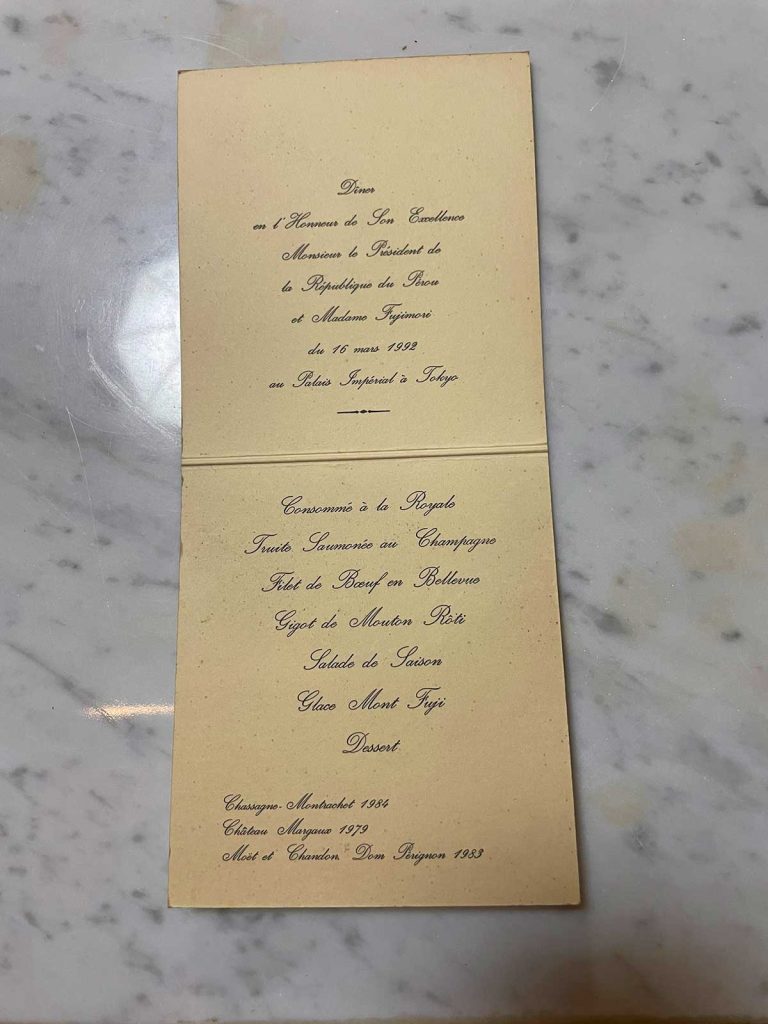 Dîner
en l'Honneur de Son Excellence
Monsieur le Président de
la République du Pérou
et Madame Fujimori
du 16 mars 1992
au Palais Impérial à Tokyo
Consommé à la Royale
Truite Saumonée au Champagne
Filet de Bœuf en Bellevue
Gigot de Mouton Rôti
Salade de Saison
Glace Mont Fuji
Dessert
Chassagne-Montrachet 1984
Château Margaux 1979
Moët et Chandon, Dom Pérignon 1983